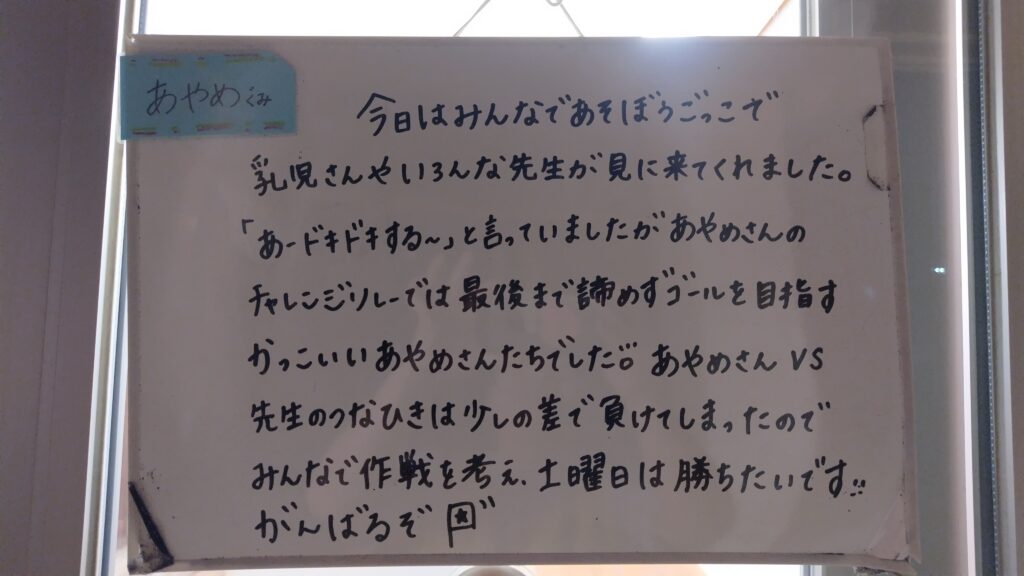 あやめくみ
今日はみんなであそぼうごっこで
乳児さんやいろんな先生が見に来てくれました。
「あードキドキする～」と言っていましたがあやめさんの
チャレンジリレーでは最後まで諦めずゴールを目指す
かっこいいあやめさんたちでした!!。あやめさんVS
先生のつなひきは少しの差で負けてしまったので
みんなで作戦を考え、土曜日は勝ちたいです!!
がんばるぞ